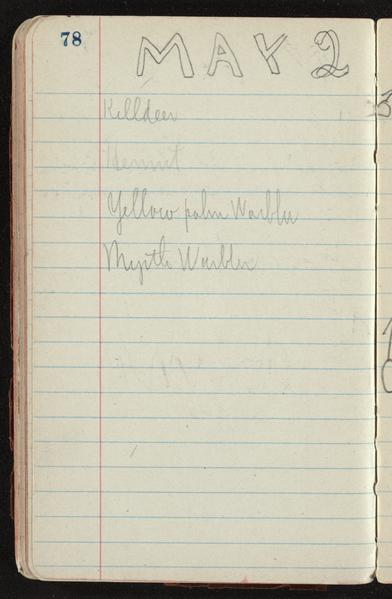 78
MAY 2
Killdeer
Hermit
Yellow palm Warbler
Myrtle Warbler